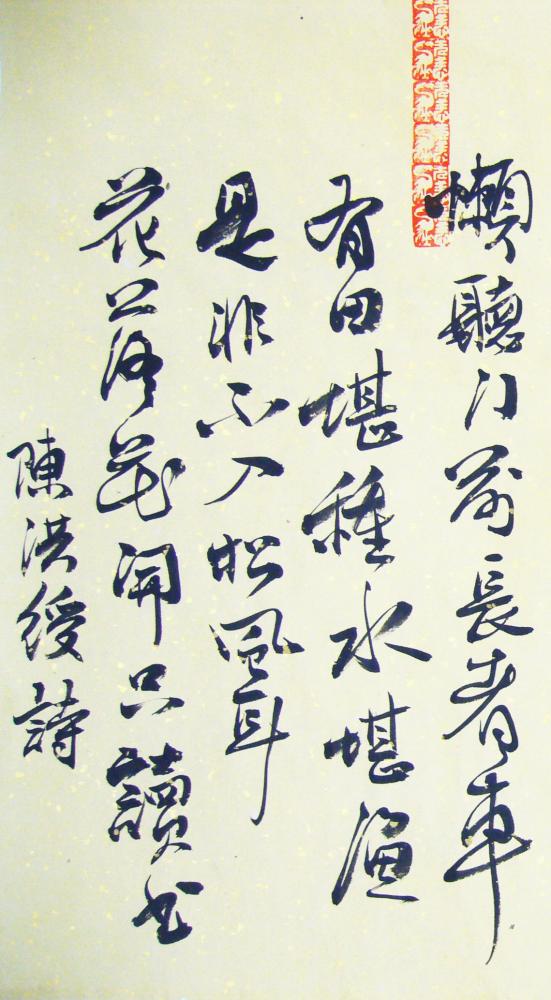 懶聽門前長者車
有田堪種水堪漁
是非不入松風耳
花落花開只讀書
陳洪綬詩